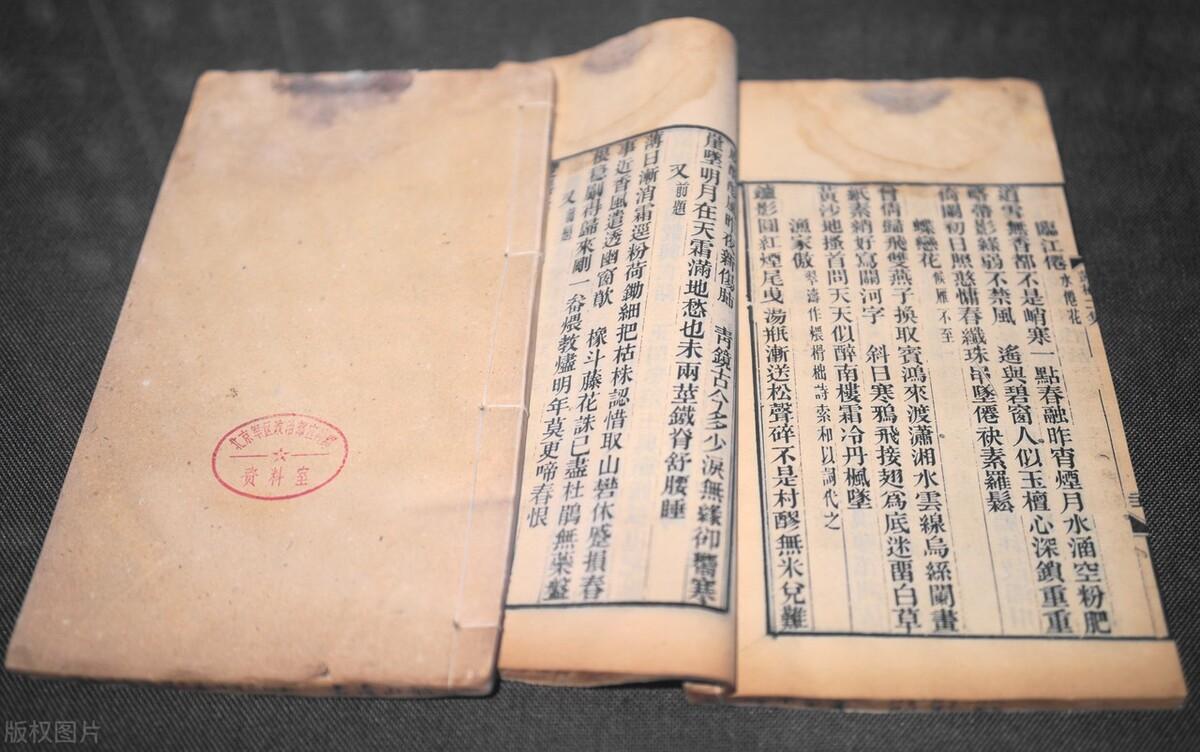 臨江僊 水僊花
道雪無香都不是峭寒一點春融昨宵煙月水涵空粉肥
略帶影緣弱不禁風 遙與碧窗人似玉檀心深鎖重重
倚闌初日照憨慵春纖珠串墜僊袂素羅鬆
蝶戀花 候雁不至
曾倩歸飛雙燕子換取賓鴻來渡瀟湘水雲線烏絲闌畫
紙素綃好寫關河字 斜日寒鴉飛接翅爲底迷畱白草
黃沙地搔首問天天似醉南樓霜冷丹楓墜
漁家傲 翠濤作煨榾柮詩索和以詞代之
鑪影圓紅煙尾曵湯瓶漸送松聲碎不是村醪無米兌難
風昨夜新傷肺 青鏡古今多少淚無緣卻響寒
崖墜明月在天霜滿地愁也未兩莖鐵脊舒腰睡
又 前題
薄日漸消霜逕粉荷鋤細把枯株認惜取山礬休蹙損春
事近香風遣透幽窗歕 橡斗藤花誅已盡杜鵑無藥盤
根隱劚得歸來剛一畚煨教燼明年莫更啼春恨
又 前題
北京军区政治部宣传部
资料室
版权图片